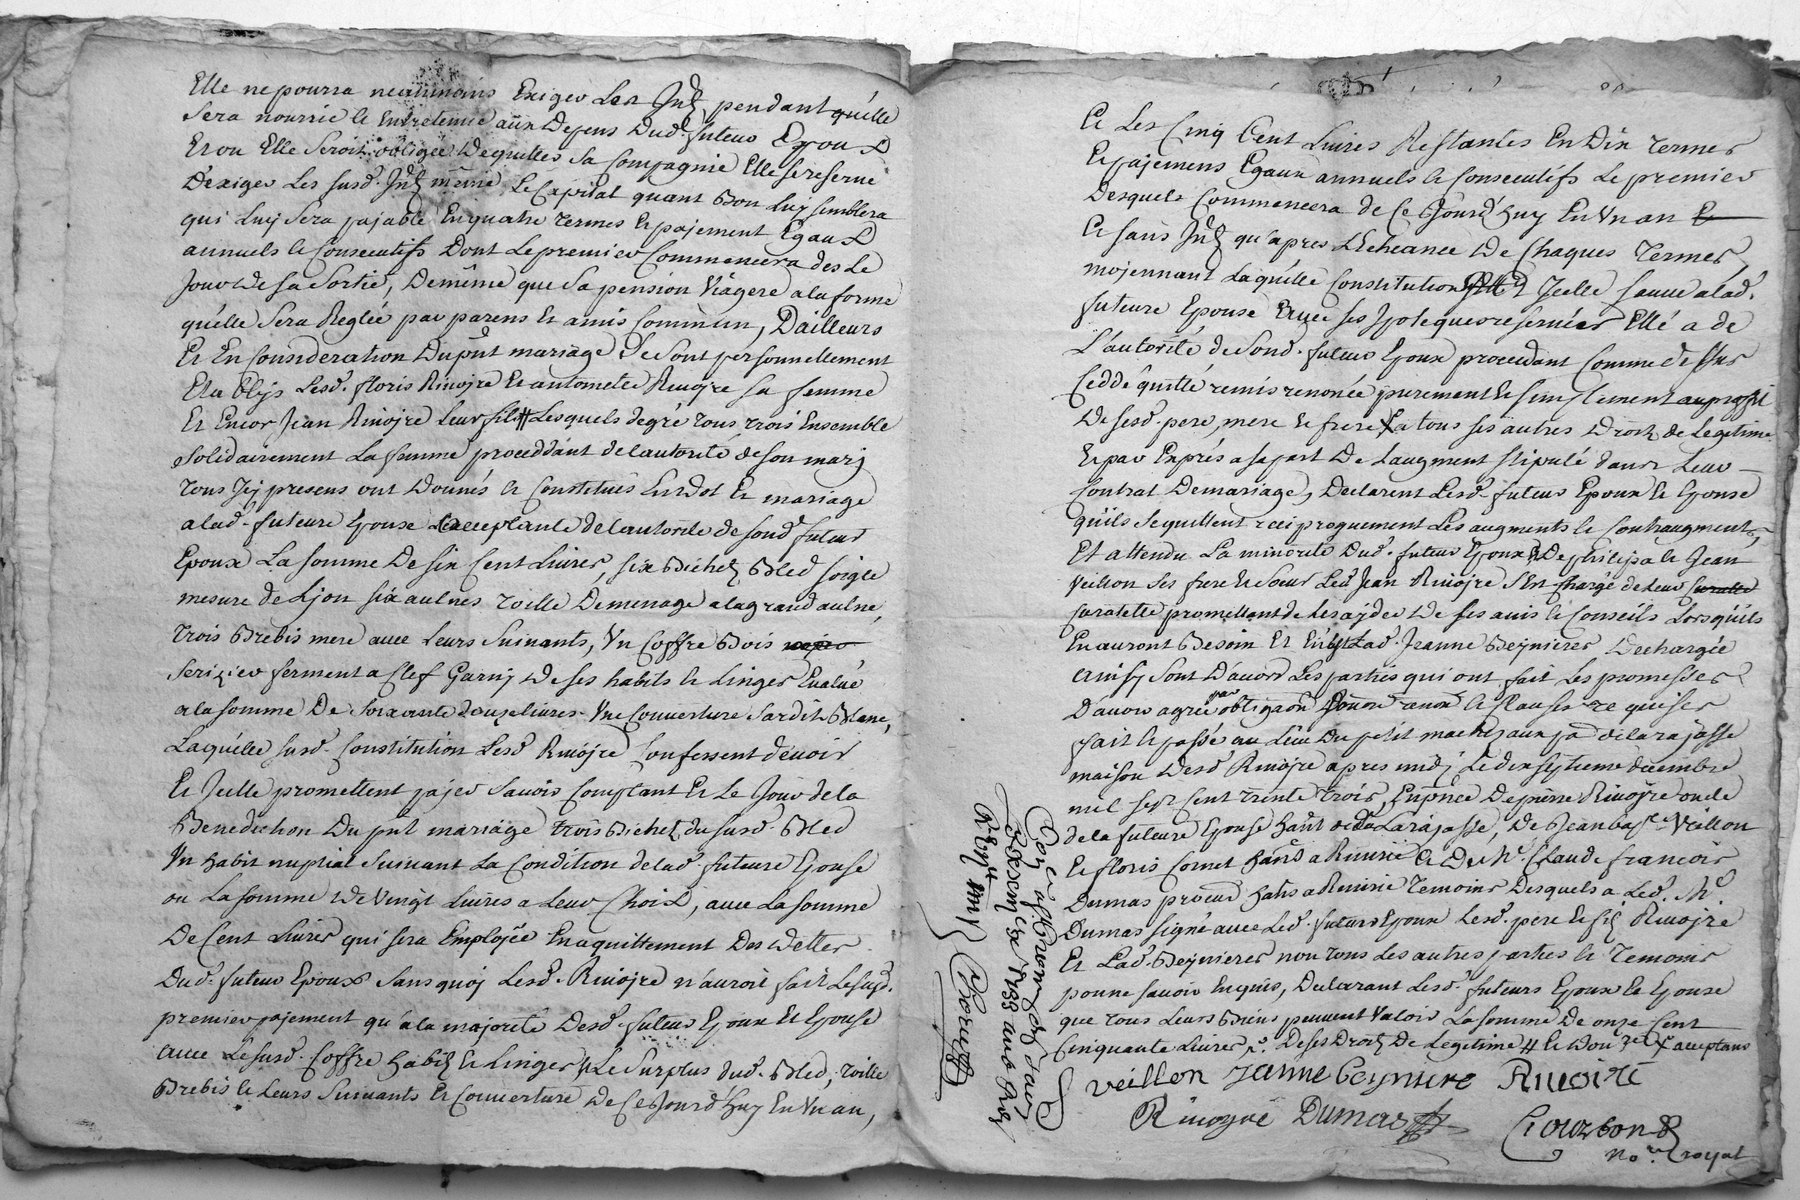 Elle ne pourra neanmoins Exiger Les Jnt. pendant qu'elle
Sera nourrie et Entretenüe aux Depens Dud. futeur Epoux
Et ou Elle Seroit obligée De quitter Sa Compagnie Elle se reserve
D'exiger Les susd. Jnt. même Le Capital quant Bon Luy semblera
qui Luy Sera payable En quatre termes et payement Egaux
annuels et Consecutifs Dont Le premier Commencera des Le
Jour de sa Sortie, De même que Sa pension Viagere a la forme
qu'elle Sera Reglée par parens et amis Commun, D'ailleurs
Et En Consideration Du pñt mariage Se Sont personnellement
Etablis Lesd. floris Rivoire Et antomete Rivoire Sa femme
Et Encor Jean Rivoire Leur fils # Lesquels de gré tous trois Ensemble
Solidairement La femme proceddant de l'autorité de son mary
tous Jcy presens ont Donnés et Constitués En Dot Et mariage
a lad. future Epouse acceptante de l'autorité de sond futeur
Epoux La somme De six Cent Livres, six Bichets Bled soigle
mesure de Lyon six aulnes toille De menage a la grand aulne,
trois Brebis mere avec Leurs Suivants, Un Coffre Bois
Serizier ferment a Clef Garny De ses habits et Linges Evalué
a la somme De Soixante douze livres. Une Couverture Sardit Blanc,
Laquelle susd. Constitution Lesd Rivoire Confessent devoir
Et Jcelle promettent payer Savoir Comptant Et Le Jour de la
Benediction Du pñt mariage trois Bichets du susd. Bled
Un habit nuptial Suivant La Condition de lad future Epouse
ou La somme De Vingt Livres a Leur Choix, avec La somme
De Cent Livres qui sera Employée En aquittement Des Dettes
Dud. futeur Epoux Sans quoy Lesd. Rivoire n'auroit fait Le susd.
premier payement qu'a la majorité Desd. futeur Epoux Et Epouse
avec Le susd. Coffre habits et Linges # Le Surplus dud. Bled, toille
Brebis et Leurs Suivants Et Couverture De Ce Jourd'huy En Un an,
Et Les Cinq Cent Livres Restantes En Dix termes
Et payemens Egaux annuels et Consecutifs Le premier
Desquels Commencera de Ce Jourd'huy En Un an
Et sans Jnt. qu'apres L'Echeance De Chaques termes,
moyennant Laquelle Constitution Jcelle sauve a lad.
future Epouse avec ses Jpoteques reservées Elle a de
L'autorité de Sond. futeur Epoux procedant Comme dessus
Ceddé quitté remis renoncée purement et simplement au profit
De sesd. pere, mere et frere a tous ses autres Droits de Legitime
Et par Exprés a sa part De L'augment stipulé dans Leur
Contrat De mariage, Declarent Lesd. futeur Epoux et Epouse
qu'ils Se quittent reciproquement Les augments et Contraugments
Et attendu La minorité Dud. futeur Epoux De philipa et Jean
Veillon Ses frere et Soeur Led Jean Rivoire S'En Charge de Leur
Curatelle promettant de Les ayder De ses avis et Conseils Lors qu'ils
En auront Besoin Et Lad. Jeanne Beynieres Dechargée
ainsy Sont D'acord Les parties qui ont fait Les promesses
D'avoir agrée par obligaõn et Clauses requises
fait et passé au Lieu Du petit machez aux paõ de la rajasse
maison Desd Rivoire apres midy Le dix septieme decembre
mil sept Cent trente trois, En pñce De pierre Rivoire oncle
de la future Epouse hañt Larajasse, De Jean bapte. Veillon
et floris Cornet hañt a Riverie Et De Me. Claude francois
Dumas procur hañt a Riverie temoins Desquels a Led. Me.
Dumas signé avec Led. futeur Epoux Lesd. pere et fils Rivoire
Et Lad. Beynieres non tous Les autres parties et temoins
pour ne Savoir Enquis, Declarant Lesd. futeurs Epoux Et Epouse
que tous Leurs Biens peuvent Valoir La somme De onze Cent
Cinquante Livres De ses Droits De Legitime # acceptans
Veillon Janne beyniere Rivoire
Rivoyre Dumas
Courbon
No.re royal